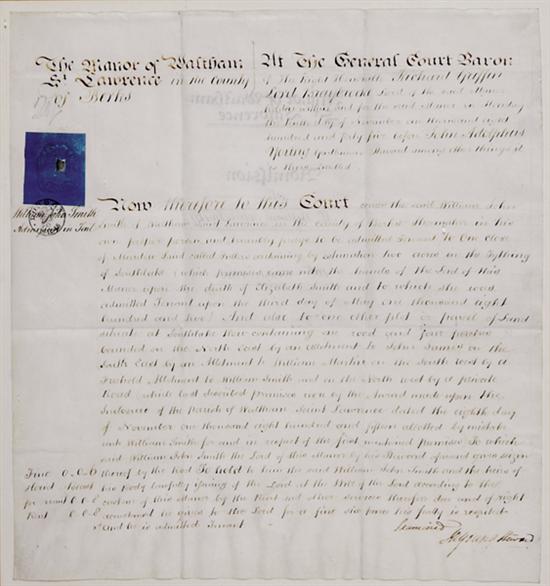 The Manor of Waltham
St Lawrence in the County
of Berks
At The General Court Baron
of The Right Honorable Richard Griffin
Lord Braybrooke Lord of the said Manor
holden within and for the said Manor on Monday
the Tenth day of November one thousand eight
hundred and forty five before John Adolphus
Young Gentleman Steward among other things it
is thus Enrolled
William John Smith
Admission in Tail
Now therefore to this Court comes the said William John
Smith of Waltham Saint Lawrence in the County of Berks Shoemaker in his
own proper person and humbly prays to be admitted Tenant To One Close
of Land called containing by estimation two acres in the Tything
of Southlake which premises came into the hands of the Lord of this
Manor upon the death of Elizabeth Smith and to which she was
admitted Tenant upon the third day of May one thousand eight
hundred and two And also to one other plot or parcel of Land
situate at Southlake Now containing one rood and four perches
bounded on the North East by an allotment to John James on the
South East by an Allotment to William Martin on the South West by a
Freehold Allotment to William Smith and on the North West by a private
Road which last described premises were by the Award made upon the
Inclosure of the Parish of Waltham Saint Lawrence dated the eighth day
of November one thousand eight hundred and fifteen allotted by mistake
unto William Smith for and in respect of the first mentioned premises To which
said William John Smith the Lord of this Manor by his Steward aforesaid gives seizin
thereof by the Rod To hold to him the said William John Smith and the heirs of
his Body lawfully issuing of the Lord at the Will of the Lord according to the
custom of this Manor by the Rent and other services therefor due and of right
accustomed he gives to the Lord for a fine six pence his fealty is respited
And he is admitted Tenant
Fine 0. 0. 6
Rent
Examined
Steward